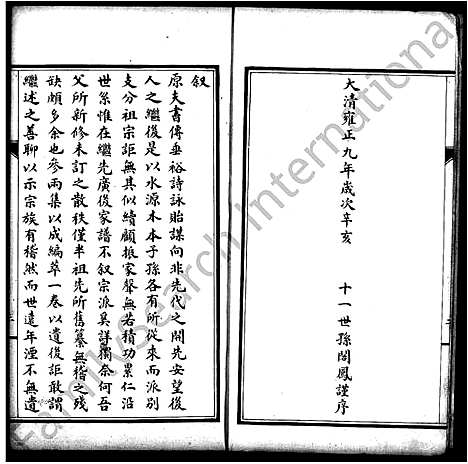 大清雍正九年歲次辛亥
十一世孫閣鳳謹序
叙
原夫書傳垂裕詩詠貽謀向非先代之開先安望後
人之繼後是以水源木本子孫各有所從來而派別
支分祖宗詎無具似續顧振家聲無若積功累仁沿
世系惟在繼先廣後家譜不叙宗派奚詳獨奈何吾
父所新修未訂之散秩僅半祖先所舊纂無稽之殘
缺頗多余也參兩集以成編萃一卷以遺後詎敢謂
繼述之善聊以示宗族有稽然而世遠年湮不無遺
FamilySearch International